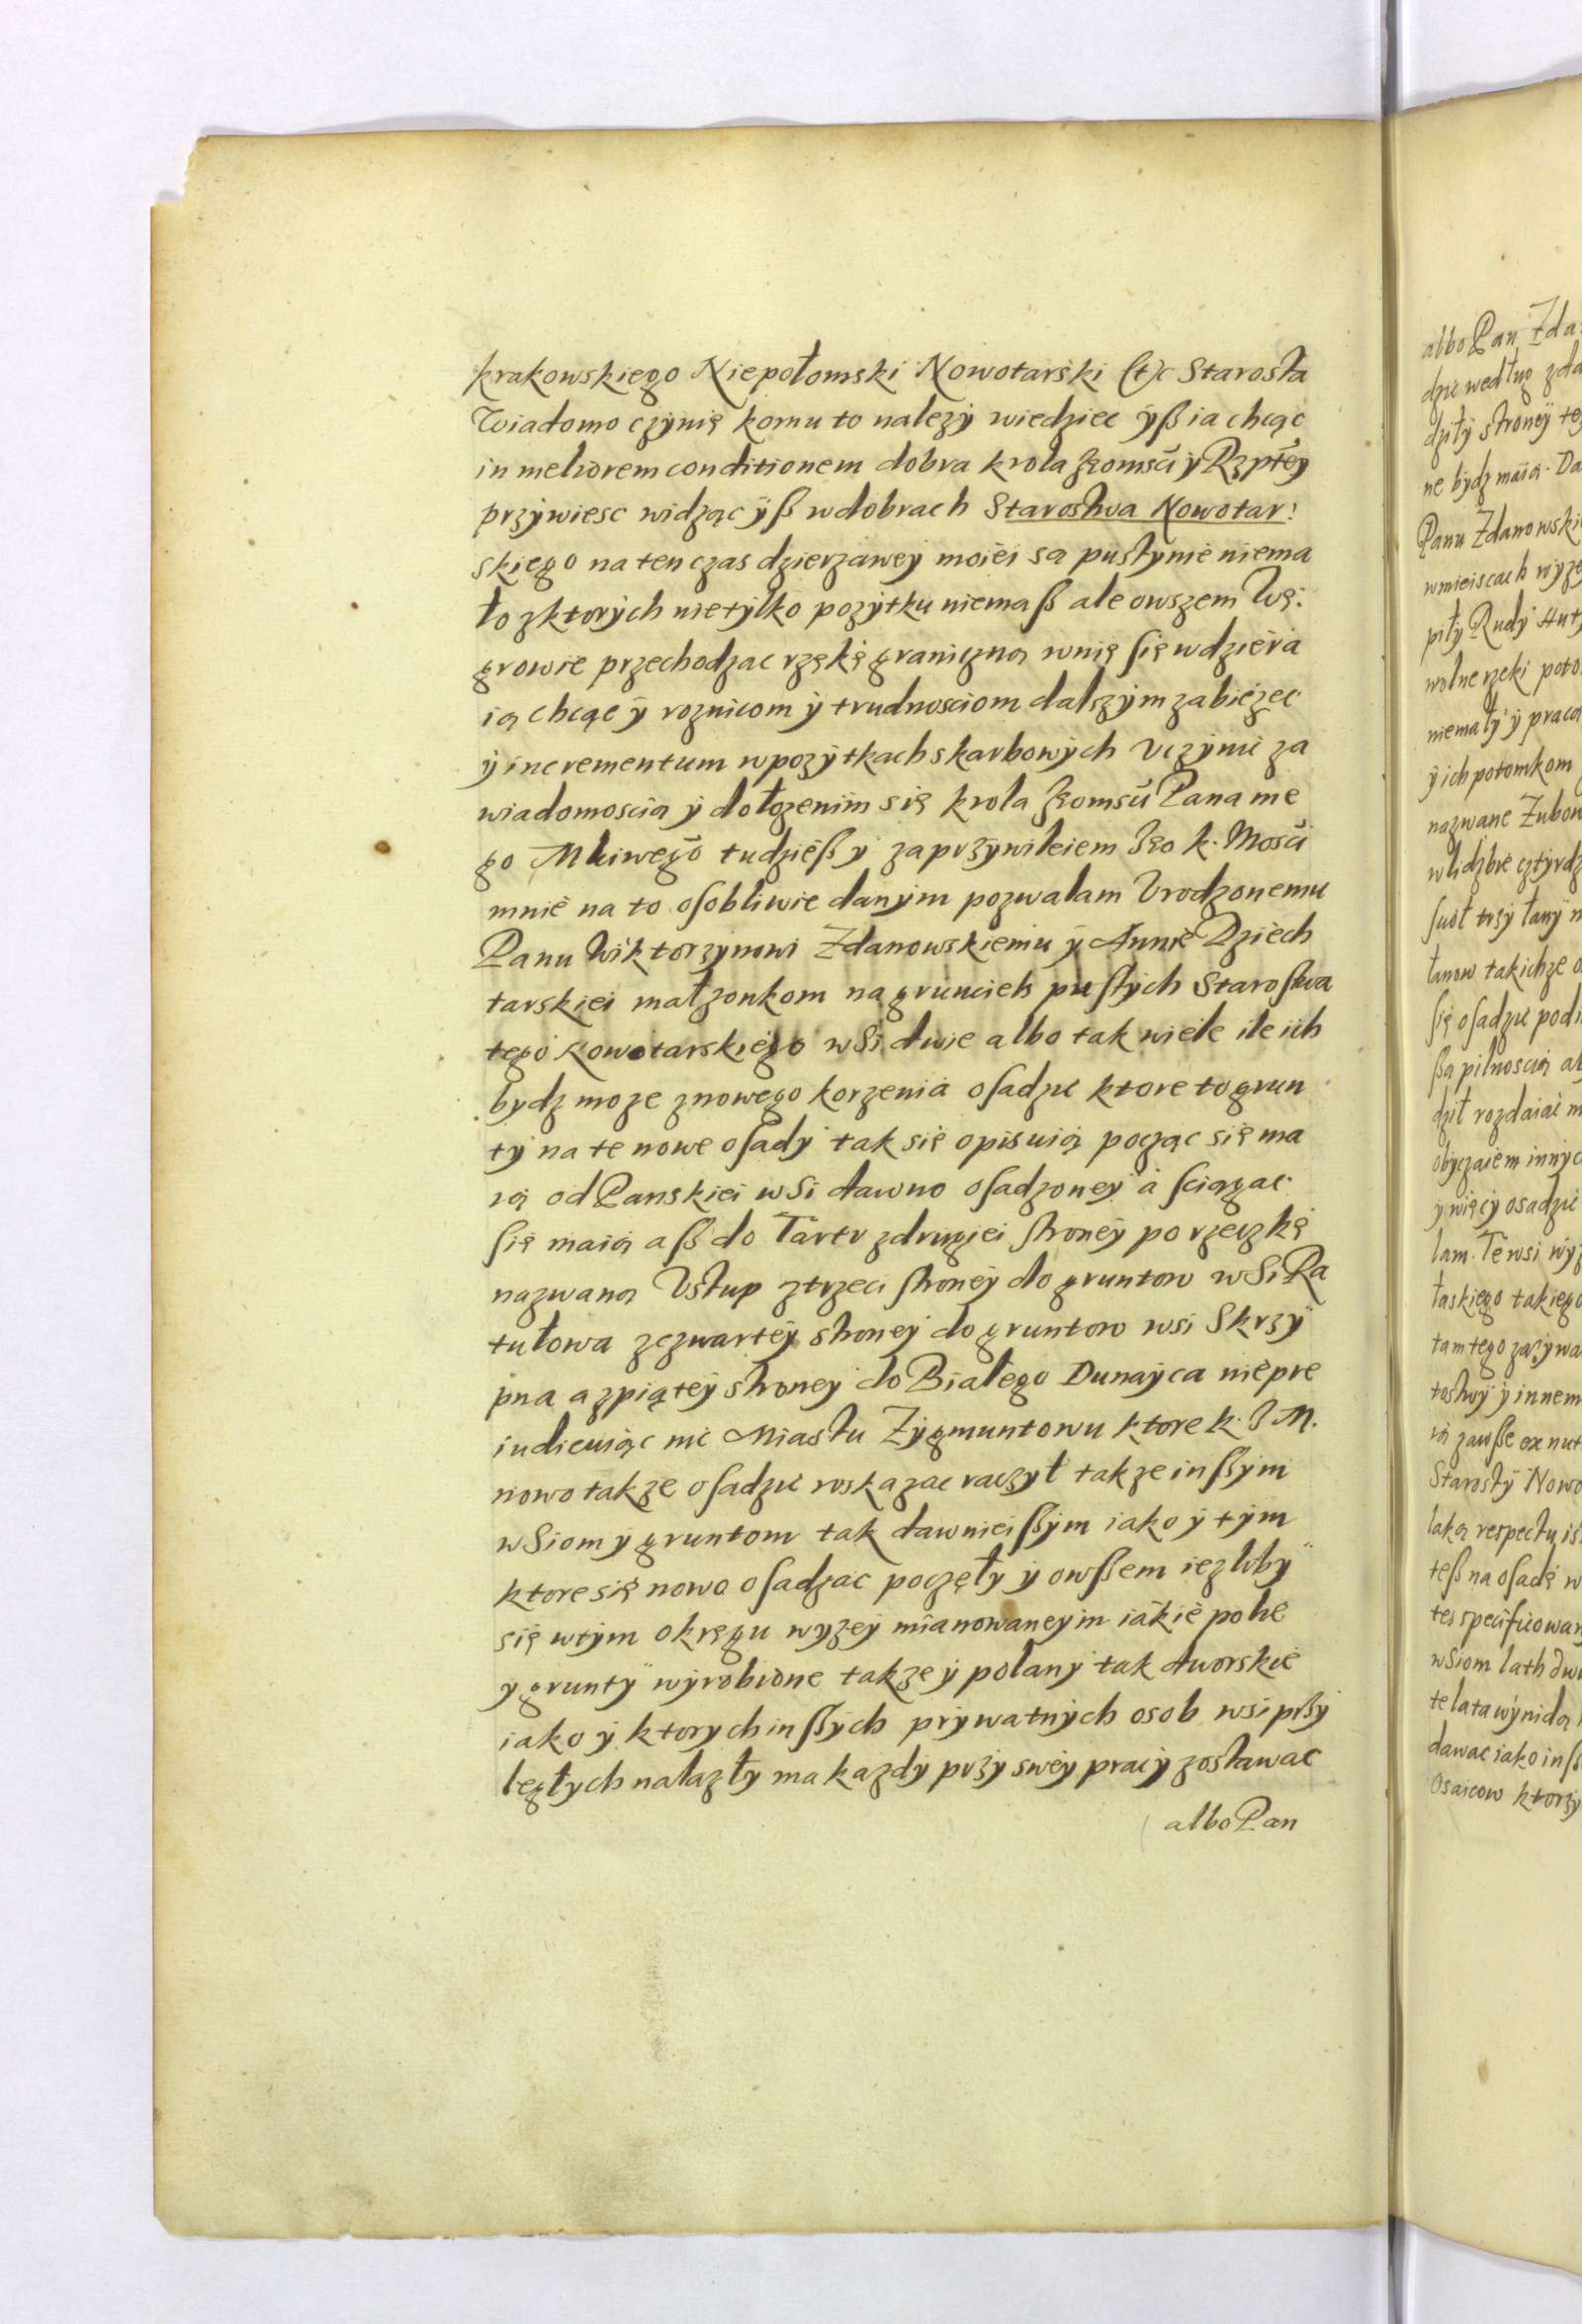 krakowskiego Niepołomski Nowotarski (t)c Starosta
Wiadomo czynię komu to nalezy wiedziec yß ia chcąc
in meliorem conditionem dobra krola Jeomsci y Rzptey
przywiesc widząc yß wdobrach Starostwa Nowotar:
skiego na ten czas dzierzawey moiei sa pustynie niema
ło zktorych nietylko pozytku niemaß ale owszem Wę:
growie przechodzac rzękę graniczną wnię się wdziera
ią chcąc y roznicom y trudnosciom dalszym zabiezec
y incrementum wpozytkach skarbowych Vczynic za
wiadomoscią y dołozenim się krola Jeomsci Pana me
go Mciwego tudzieß y zaprzywileiem Jeo k. Mosci
mnie na to osobliwie danym pozwalam Vrodzonemu
Panu Wiktorzynowi Zdanowskiemu y Annie Dziech
tarskiei małzonkom na grunciech pustych Starostwa
tego Nowotarskiego wsi dwie albo tak wiele ile iich
bydz moze znowego korzenia osadzic ktore to grun
ty na te nowe osady tak się opisuią począc się ma
ią od Panskiei wsi dawno osadzoney a sciągac
się maią aß do Tartr zdrugiei stroney po rzeczkę
nazwaną Vstup ztrzeci stroney do gruntow wsi Ra
tułowa zczwartey stroney do gruntow wsi Skrzy
pna a zpiątey stroney do Białego Dunayca niepre
iudicuiąc nic Miastu Zygmuntowu ktore k. J M.
nowo takze osadzic roskazac raczył takze inßym
wsiom y gruntom tak dawnieißym iako y tym
ktore się nowo osadzac poczęły y owßem iezliby
się wtym okręgu wyzey mianowaneym iakie pole
y grunty wyrobione takze y polany tak dworskie
iako y ktorych inßych prywatnych osob wsi przy
ległych nalazły ma kazdy przy swey pracy zostawac
albo Pan